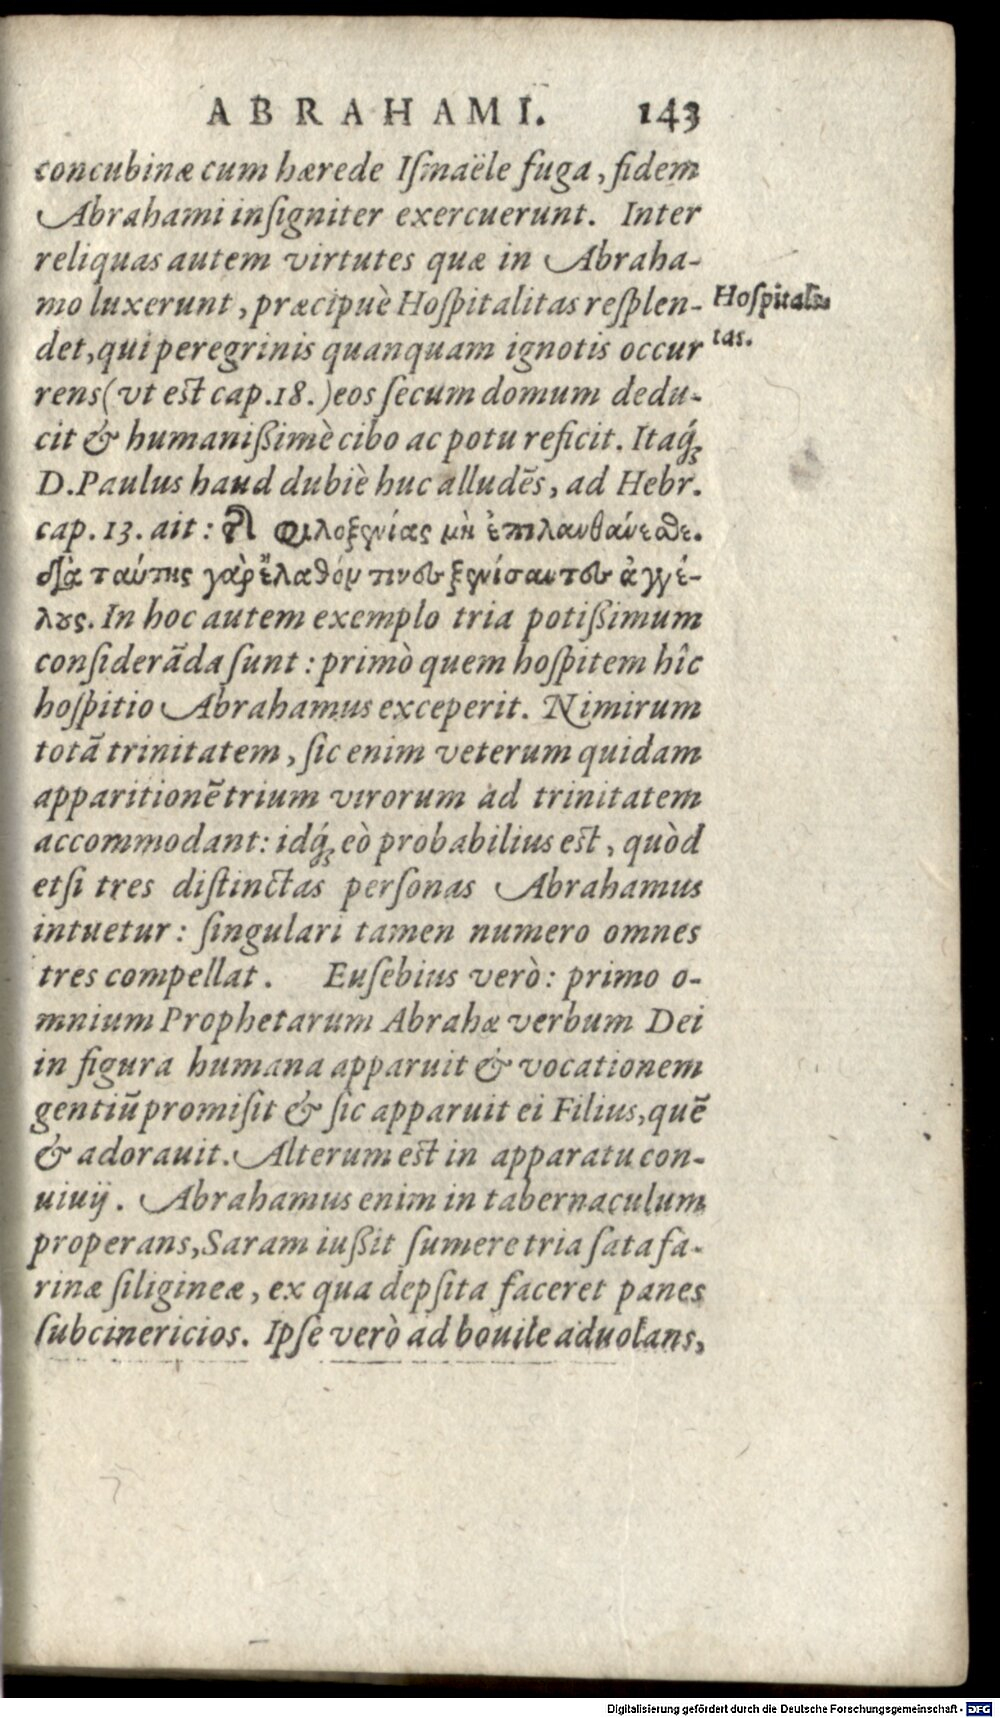 ABRAHAMI. 143
concubinæ cum hærede Iſmaële fuga, fidem
Abrahami inſigniter exercuerunt. Inter
reliquas autem virtutes quæ in Abraha-
mo luxerunt, præcipuè Hoſpitalitas reſplen-
Hoſpitali-
tas.
det, qui peregrinis quanquam ignotis occur
rens (vt eſt cap. 18.) eos ſecum domum dedu-
cit & humanißimè cibo ac potu reficit. Itaq́;
D. Paulus haud dubiè huc alludẽs, ad Hebr.
cap. 13. ait: τῆ φιλοξενίας μὴ ἐπιλανθάνεϑε.
διὰ ταύτης γὰρ ἔλαθόν τινες ξενίσαντες ἀγγέ-
λȣς. In hoc autem exemplo tria potißimum
conſiderãda ſunt: primò quem hoſpitem hîc
hoſpitio Abrahamus exceperit. Nimirum
totã trinitatem, ſic enim veterum quidam
apparitionẽ trium virorum ad trinitatem
accommodant: idq́; eò probabilius eſt, quòd
etſi tres diſtinctas perſonas Abrahamus
intuetur: ſingulari tamen numero omnes
tres compellat. Euſebius verò: primo o-
mnium Prophetarum Abrahæ verbum Dei
in figura humana apparuit & vocationem
gentiũ promiſit & ſic apparuit ei Filius, quẽ
& adorauit. Alterum eſt in apparatu con-
uiuij. Abrahamus enim in tabernaculum
properans, Saram iußit ſumere tria ſata fa-
rinæ ſiligineæ, ex qua depſita faceret panes
ſubcinericios. Ipſe verò ad bouile aduolans,
Digitalisierung gefördert durch die Deutsche Forschungsgemeinschaft - DFG